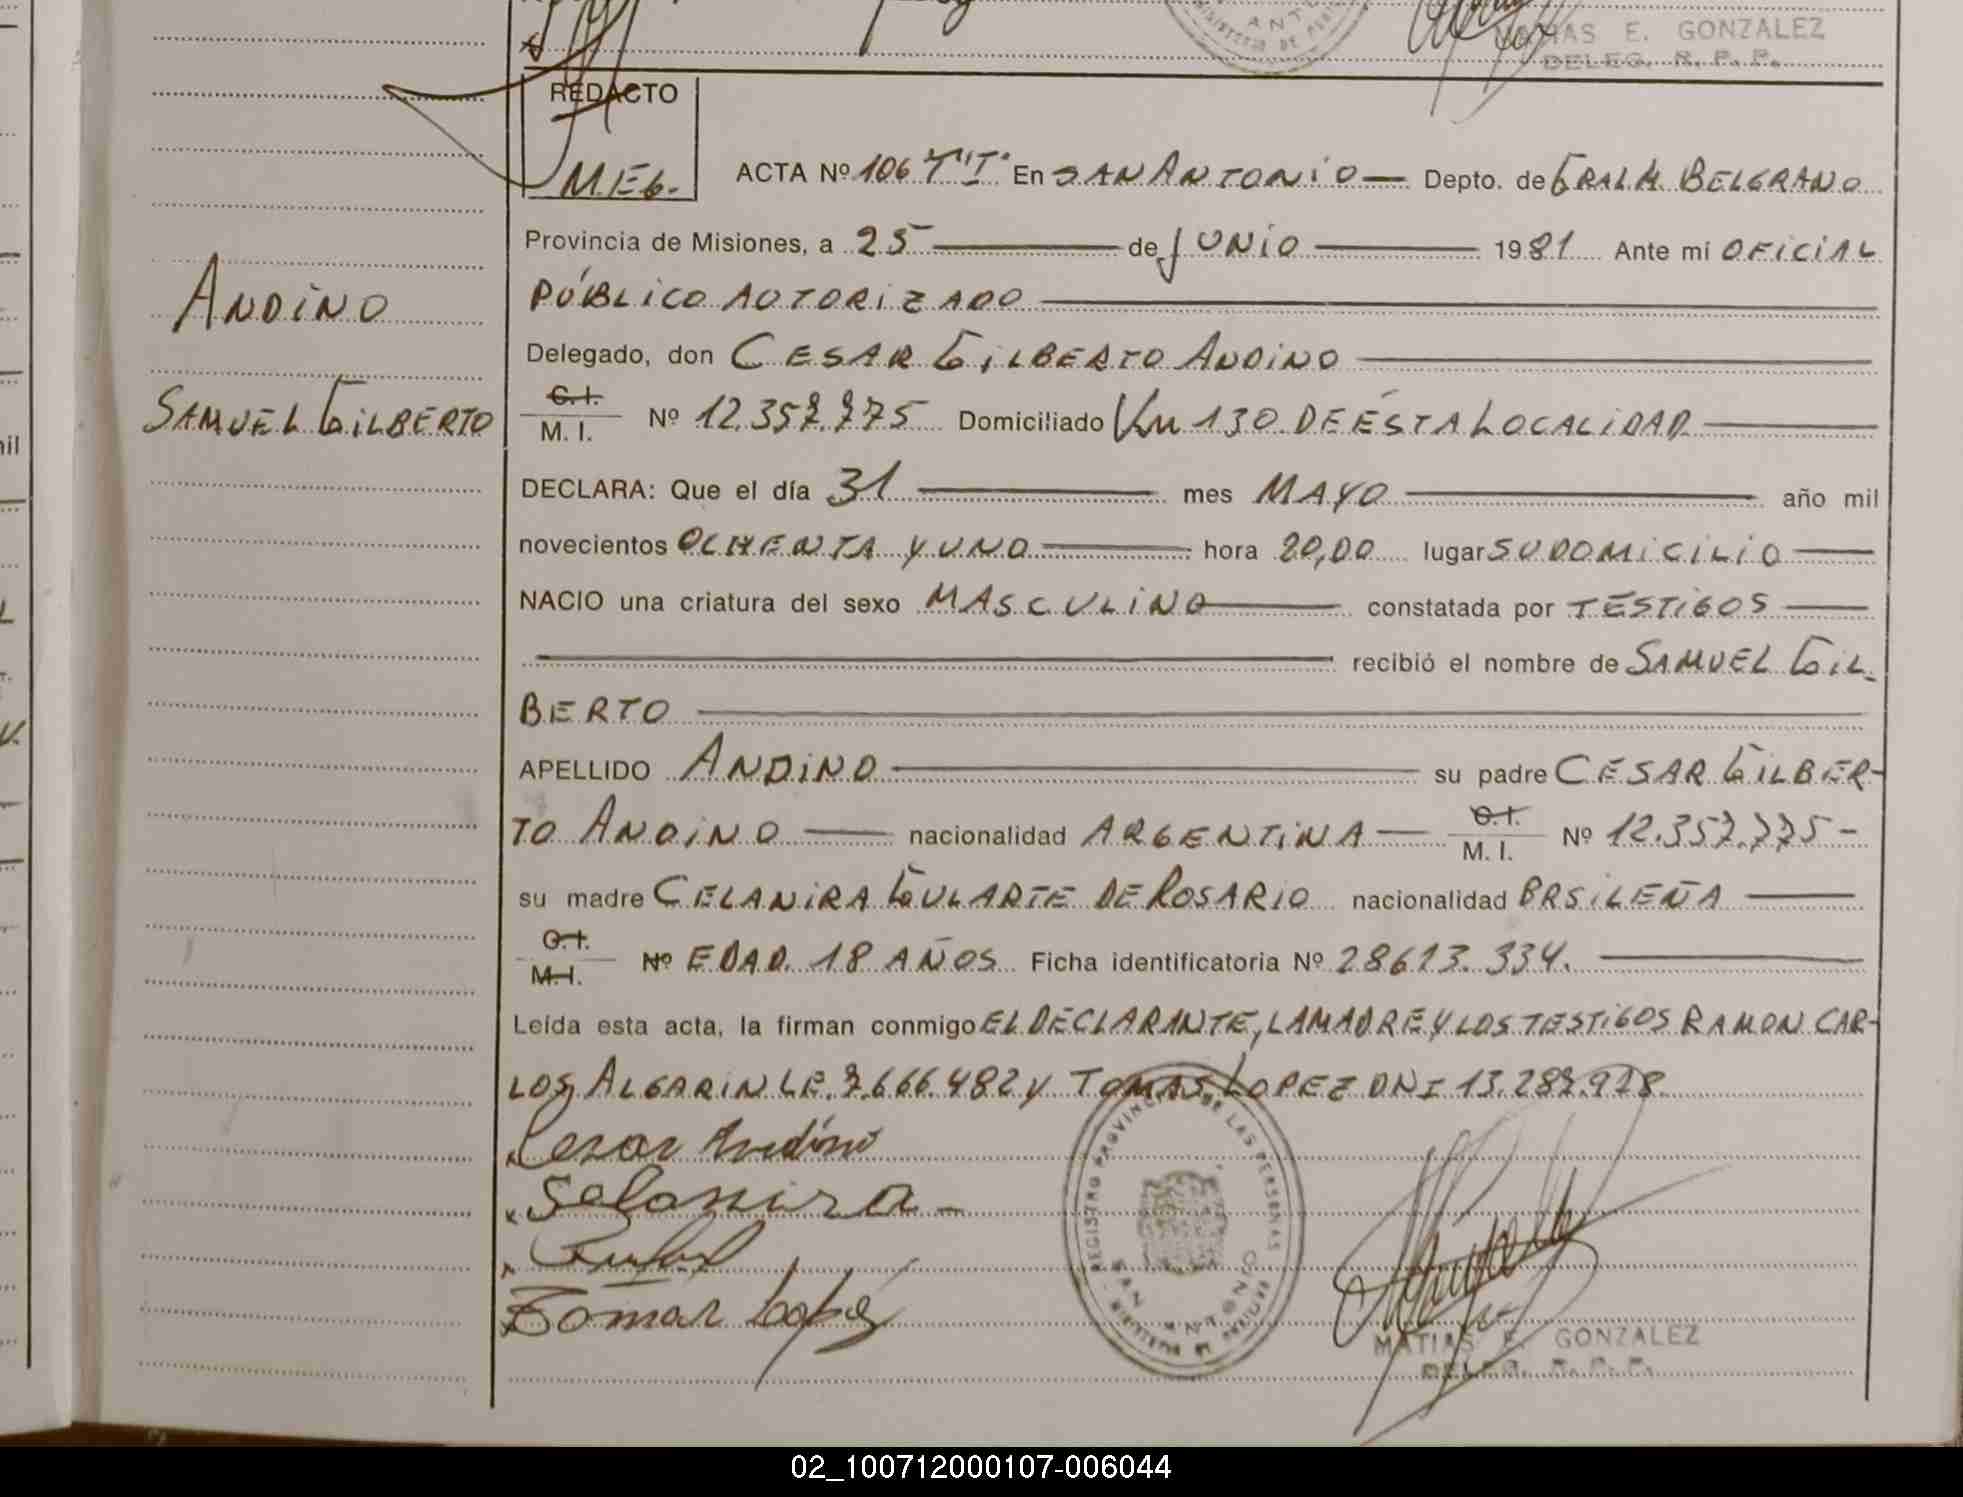 MATIAS E. GONZALEZ
DELEG. R. P. P.
REDACTO
M.E.G.
ACTA Nº 106 T"I" En SAN ANTONIO — Depto. de GRAL M. BELGRANO
Provincia de Misiones, a 25 de JUNIO 1981 Ante mi OFICIAL
PÚBLICO AUTORIZADO
ANDINO
Delegado, don CESAR GILBERTO ANDINO
SAMUEL GILBERTO
C.I.
M. I. Nº 12.357.775 Domiciliado Km 130 DE ÉSTA LOCALIDAD
DECLARA: Que el día 31 mes MAYO año mil
novecientos OCHENTA Y UNO hora 20,00 lugar SU DOMICILIO
NACIO una criatura del sexo MASCULINO constatada por TESTIGOS
recibió el nombre de SAMUEL GIL-
BERTO
APELLIDO ANDINO su padre CESAR GILBER-
TO ANDINO nacionalidad ARGENTINA C.I.
M. I. Nº 12.357.775 -
su madre CELANIRA GULARTE DE ROSARIO nacionalidad BRSILEÑA
C.I.
M.I. Nº EDAD 18 AÑOS Ficha identificatoria Nº 28613.334.
Leída esta acta, la firman conmigo EL DECLARANTE, LA MADRE Y LOS TESTIGOS RAMON CAR-
LOS ALGARIN L.E. 7.666.482 y TOMAS LOPEZ DNI 13.287.928
Cesar Andino
Selanira -
Tomás López
REGISTRO PROVINCIAL DE LAS PERSONAS
SAN ANTONIO
MATIAS E. GONZALEZ
DELEG. R. P. P.
02_100712000107-006044